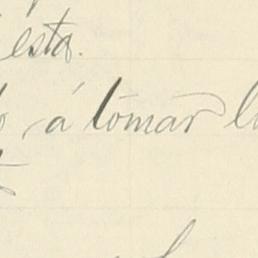 ésta.
á tomar